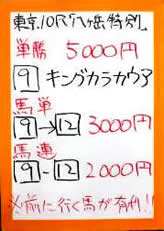 東京10R八ヶ岳特別
単勝 5000円
9 キングカラカウア
馬単
9→12 3000円
馬連
9-12 2000円
※前に行く馬が有利!!